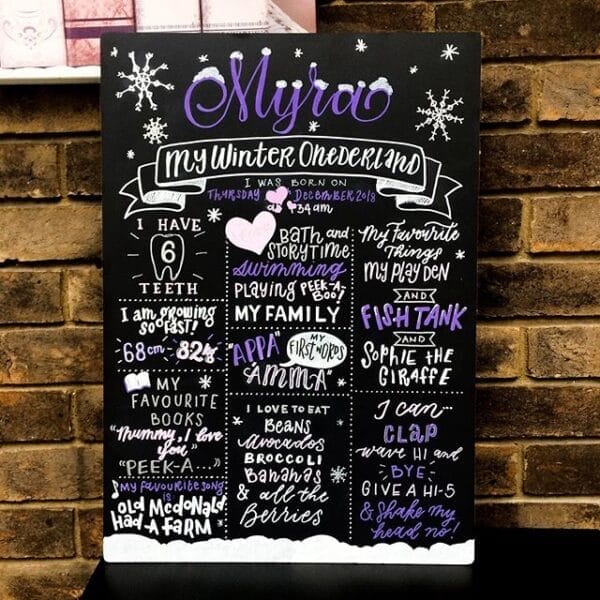 Myra
My Winter Onederland
I WAS BORN ON
THURSDAY DECEMBER 2018
I HAVE
6
TEETH
I am growing
so fast!
68cm -
MY
FAVOURITE
BOOKS
"Mummy, I love
you"
"PEEK-A..."
MY FAVOURITE SONG
IS
Old McDonald
Had-A FARM
BATH and
STORYTIME
swimming
PLAYING PEEK-A-
BOO!
MY FAMILY
"APPA"
MY
FIRST WORDS
"AMMA"
I LOVE TO EAT
BEANS
avocados
BROCCOLI
Bananas
& all the
Berries
My Favourite
Things
MY PLAY DEN
AND
FISH TANK
AND
SOPHIE THE
GIRAFFE
I can...
CLAP
wave Hi and
BYE
GIVE A HI-5
& shake my
head no!